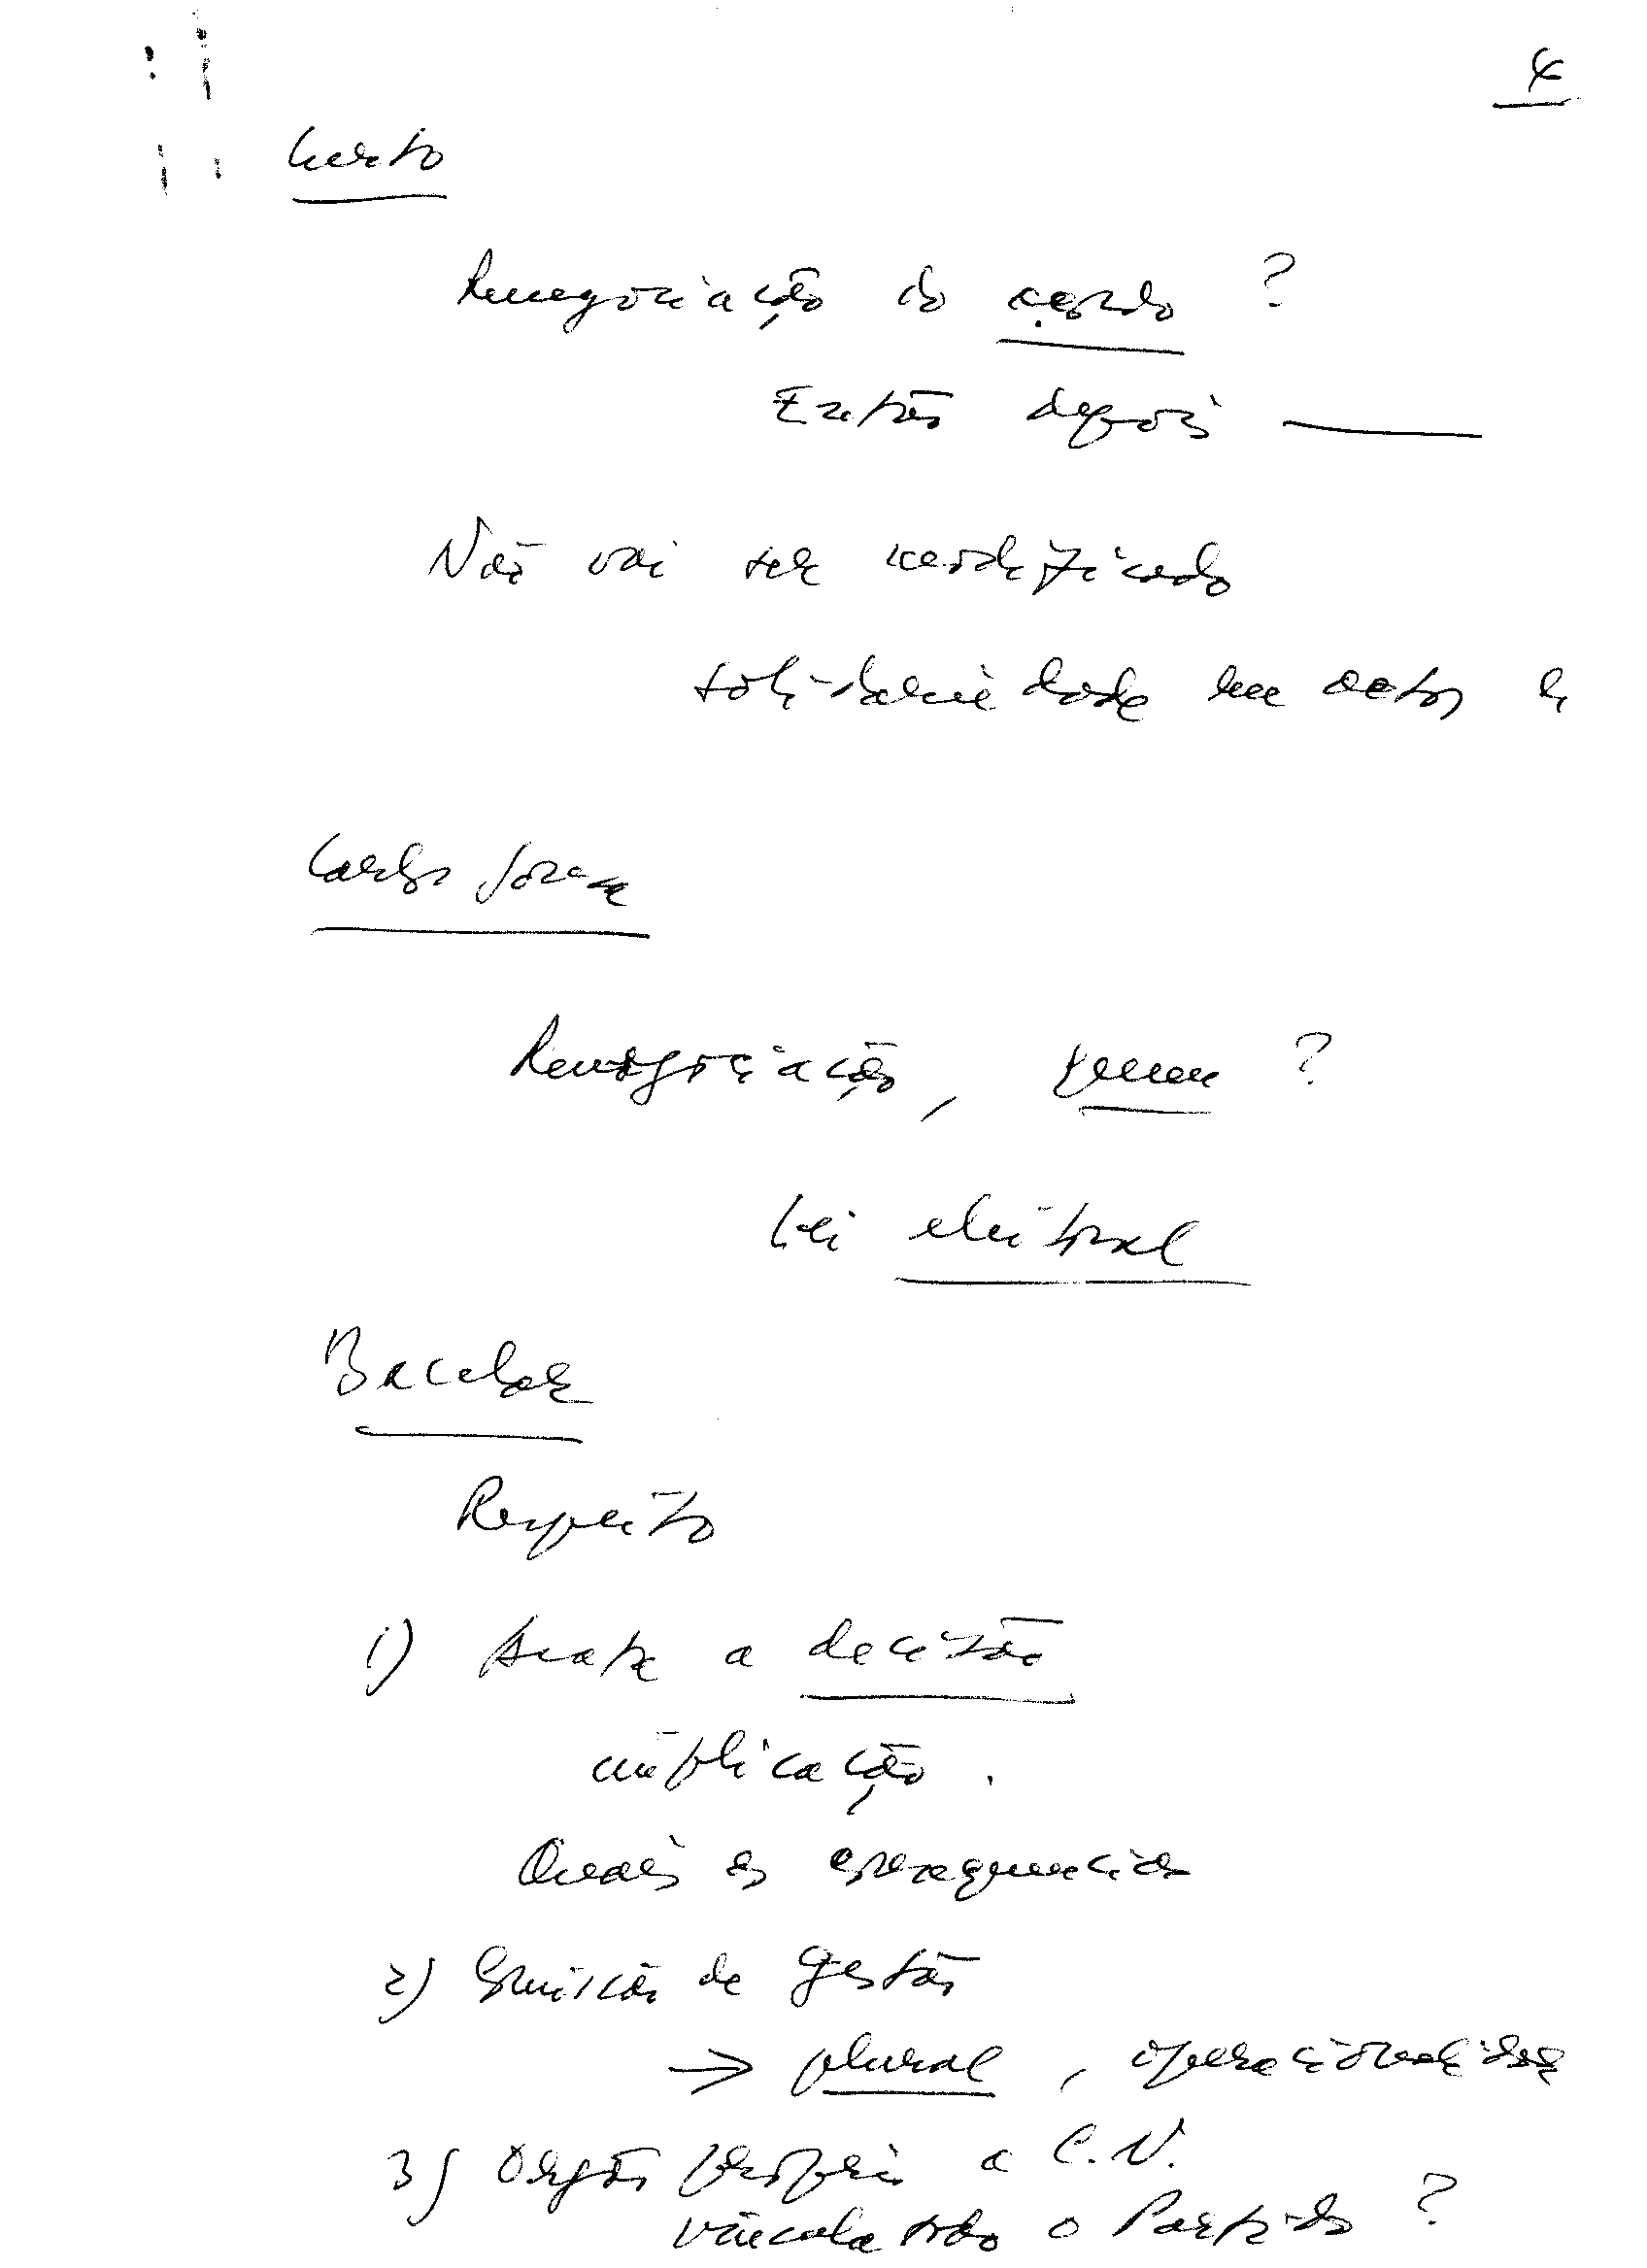 4
Renegociação do acordo ?
Então depois —
Não vai ser modificado
solidariedade em actos e
Carlos
Renegociação, quem ?
Lei eleitoral
Bacelar
Respeito
1) Acata a decisão
implicação .
Quais as consequências
2) Comissão de gestão
→ plural , operacionalidade
3) Orgão próprio a C.N.
vincula todo o Partido ?